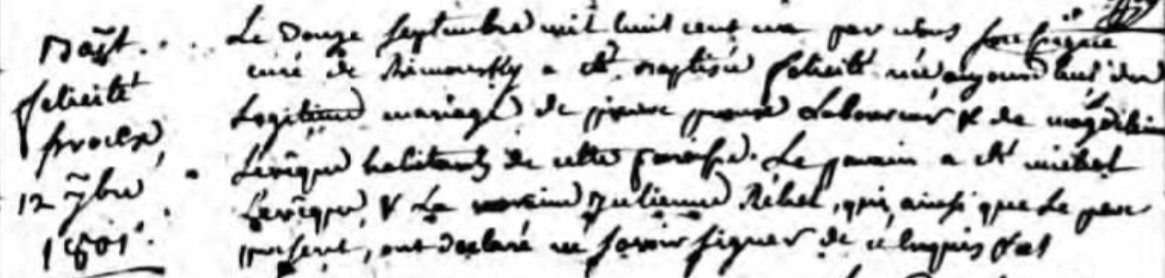 Bapt.
felicité
proulx
12 7bre
1801.
Le Douze Septembre mil huit cent un par nous soussigné
curé de Rimousky a été baptisée felicité née aujourd'hui du
Legitime mariage de pierre proux Laboureur & de magdeleine
Levêque habitants de cette paroisse. Le parain a été michel
Levêque, & La maraine Julienne Réhel, qui, ainsi que Le pere
present, ont declaré ne savoir signer de ce requis